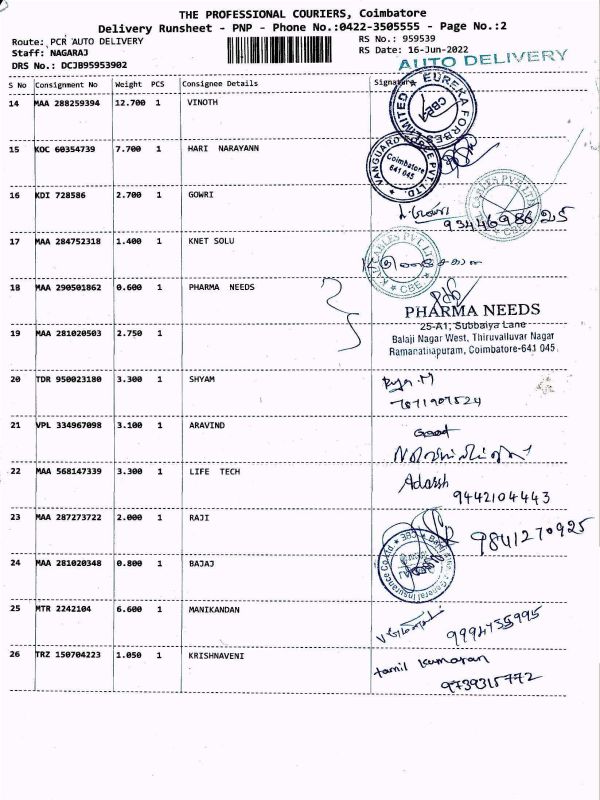 THE PROFESSIONAL COURIERS, Coimbatore
Delivery Runsheet - PNP - Phone No.:0422-3505555 - Page No.:2
Route: PCR AUTO DELIVERY RS No.: 959539
Staff: NAGARAJ RS Date: 16-Jun-2022
DRS No.: DCJB95953902 AUTO DELIVERY
S No Consignment No Weight PCS Consignee Details Signature
14 MAA 288259394 12.700 1 VINOTH
EUREKA FORBES LIMITED CBE
15 KOC 60354739 7.700 1 HARI NARAYANN
Coimbatore 641 045 PVT. LTD.
16 KDI 728586 2.700 1 GOWRI
17 MAA 284752318 1.400 1 KNET SOLU
CBE
18 MAA 290501862 0.600 1 PHARMA NEEDS
PHARMA NEEDS
25-A1, Subbaiya Lane
19 MAA 281020503 2.750 1
Balaji Nagar West, Thiruvalluvar Nagar
Ramanathapuram, Coimbatore-641 045.
20 TDR 950023180 3.300 1 SHYAM
7871907524
21 VPL 334967098 3.100 1 ARAVIND
Good
22 MAA 568147339 3.300 1 LIFE TECH
Adarsh
9442104443
23 MAA 287273722 2.000 1 RAJI
9841270925
24 MAA 281020348 0.800 1 BAJAJ
General Insurance Co.Ltd
25 MTR 2242104 6.600 1 MANIKANDAN
26 TRZ 150704223 1.050 1 KRISHNAVENI
tamil kumaran
9739315772